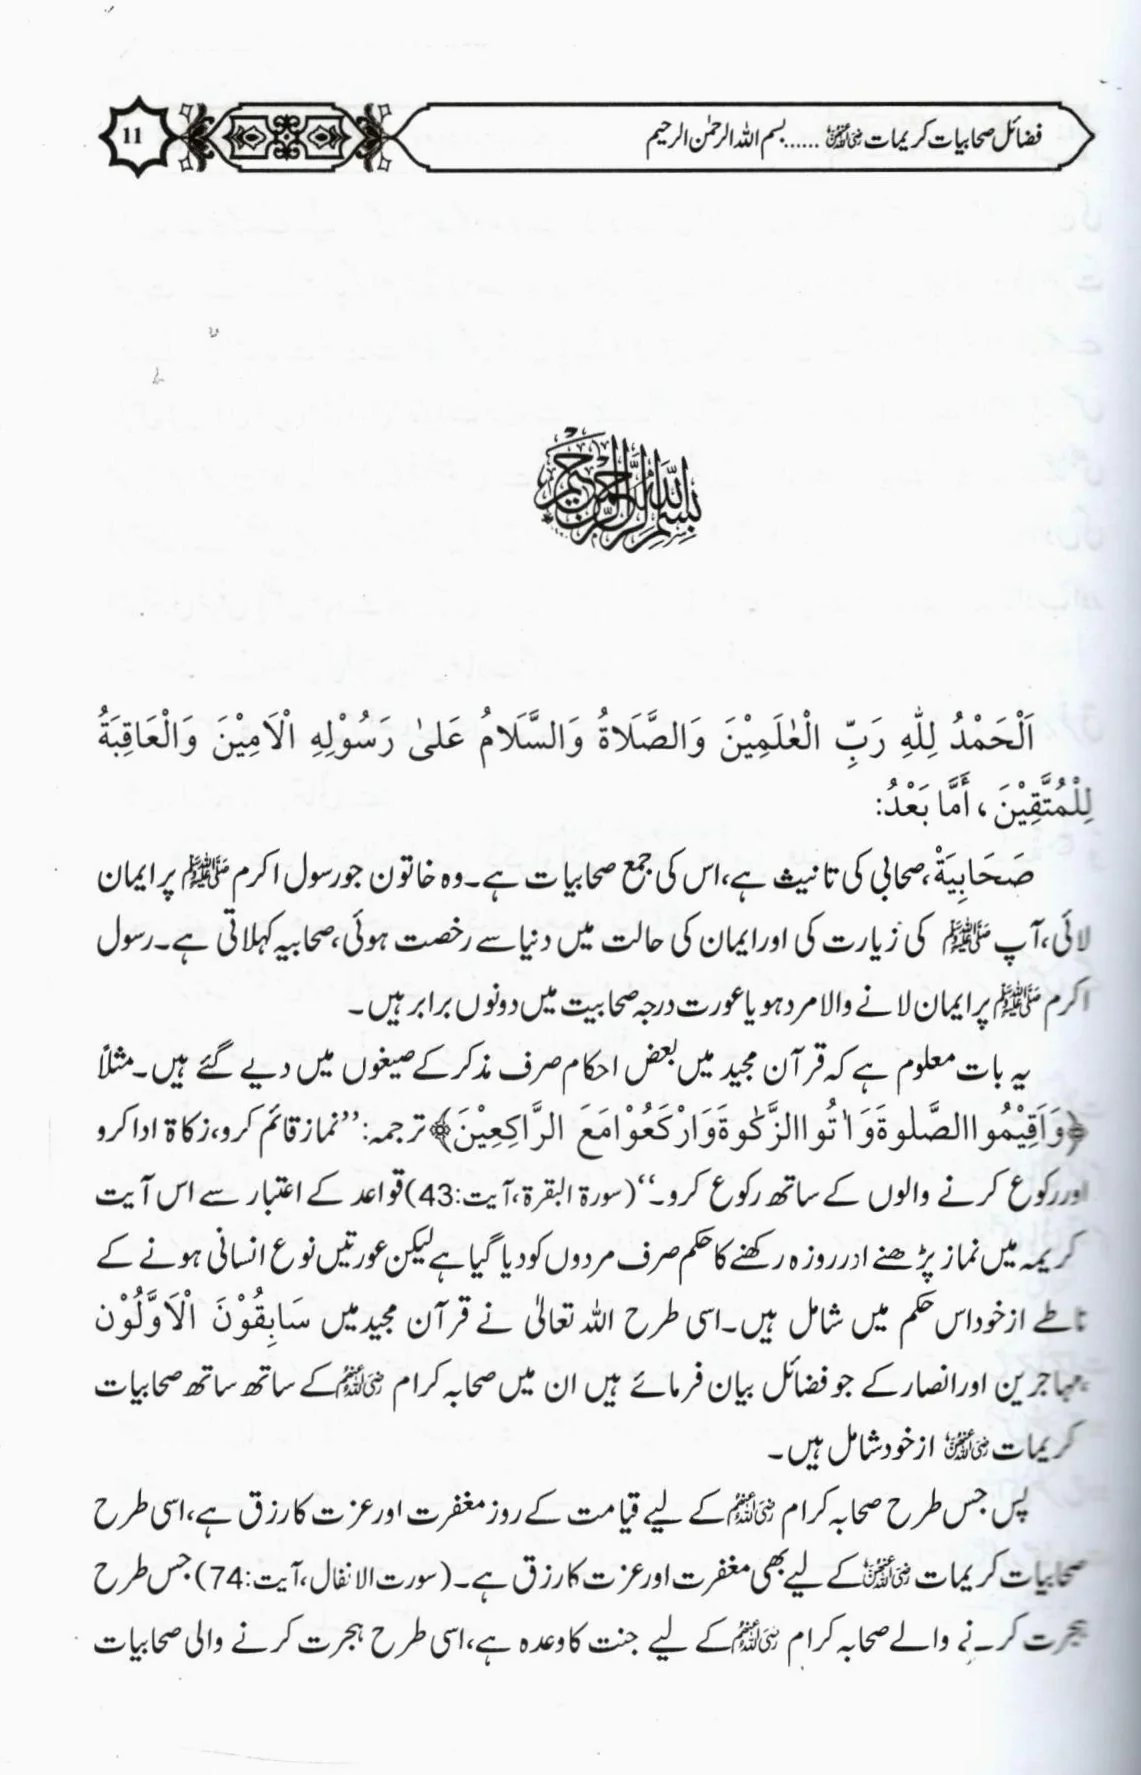 فضائل صحابیات کریمات رضی اللہ عنہن ...... بسم اللہ الرحمٰن الرحیم
11
بِسْمِ اللهِ الرَّحْمٰنِ الرَّحِيْمِ
اَلْحَمْدُ لِلّٰهِ رَبِّ الْعٰلَمِيْنَ وَالصَّلَاةُ وَالسَّلَامُ عَلىٰ رَسُوْلِهِ الْاَمِيْنَ وَالْعَاقِبَةُ
لِلْمُتَّقِيْنَ ، أَمَّا بَعْدُ:
صَحَابِيَة، صحابی کی تانیث ہے، اس کی جمع صحابیات ہے۔ وہ خاتون جو رسول اکرم ﷺ پر ایمان
لائی، آپ ﷺ کی زیارت کی اور ایمان کی حالت میں دنیا سے رخصت ہوئی، صحابیہ کہلاتی ہے۔ رسول
اکرم ﷺ پر ایمان لانے والا مرد ہو یا عورت درجہ صحابیت میں دونوں برابر ہیں۔
یہ بات معلوم ہے کہ قرآن مجید میں بعض احکام صرف مذکر کے صیغوں میں دیے گئے ہیں۔ مثلاً
﴿وَاَقِيْمُوا الصَّلٰوةَ وَاٰتُوا الزَّكٰوةَ وَارْكَعُوْا مَعَ الرَّاكِعِيْنَ﴾ ترجمہ: ’’نماز قائم کرو، زکاۃ ادا کرو
اور رکوع کرنے والوں کے ساتھ رکوع کرو۔‘‘ (سورۃ البقرۃ، آیت: 43) قواعد کے اعتبار سے اس آیت
کریمہ میں نماز پڑھنے اور روزہ رکھنے کا حکم صرف مردوں کو دیا گیا ہے لیکن عورتیں نوع انسانی ہونے کے
ناطے از خود اس حکم میں شامل ہیں۔ اسی طرح اللہ تعالیٰ نے قرآن مجید میں سَابِقُوْنَ الْاَوَّلُوْن
مہاجرین اور انصار کے جو فضائل بیان فرمائے ہیں ان میں صحابہ کرام رضی اللہ عنہم کے ساتھ ساتھ صحابیات
کریمات رضی اللہ عنہن از خود شامل ہیں۔
پس جس طرح صحابہ کرام رضی اللہ عنہم کے لیے قیامت کے روز مغفرت اور عزت کا رزق ہے، اسی طرح
صحابیات کریمات رضی اللہ عنہن کے لیے بھی مغفرت اور عزت کا رزق ہے۔ (سورت الانفال، آیت: 74) جس طرح
ہجرت کرنے والے صحابہ کرام رضی اللہ عنہم کے لیے جنت کا وعدہ ہے، اسی طرح ہجرت کرنے والی صحابیات